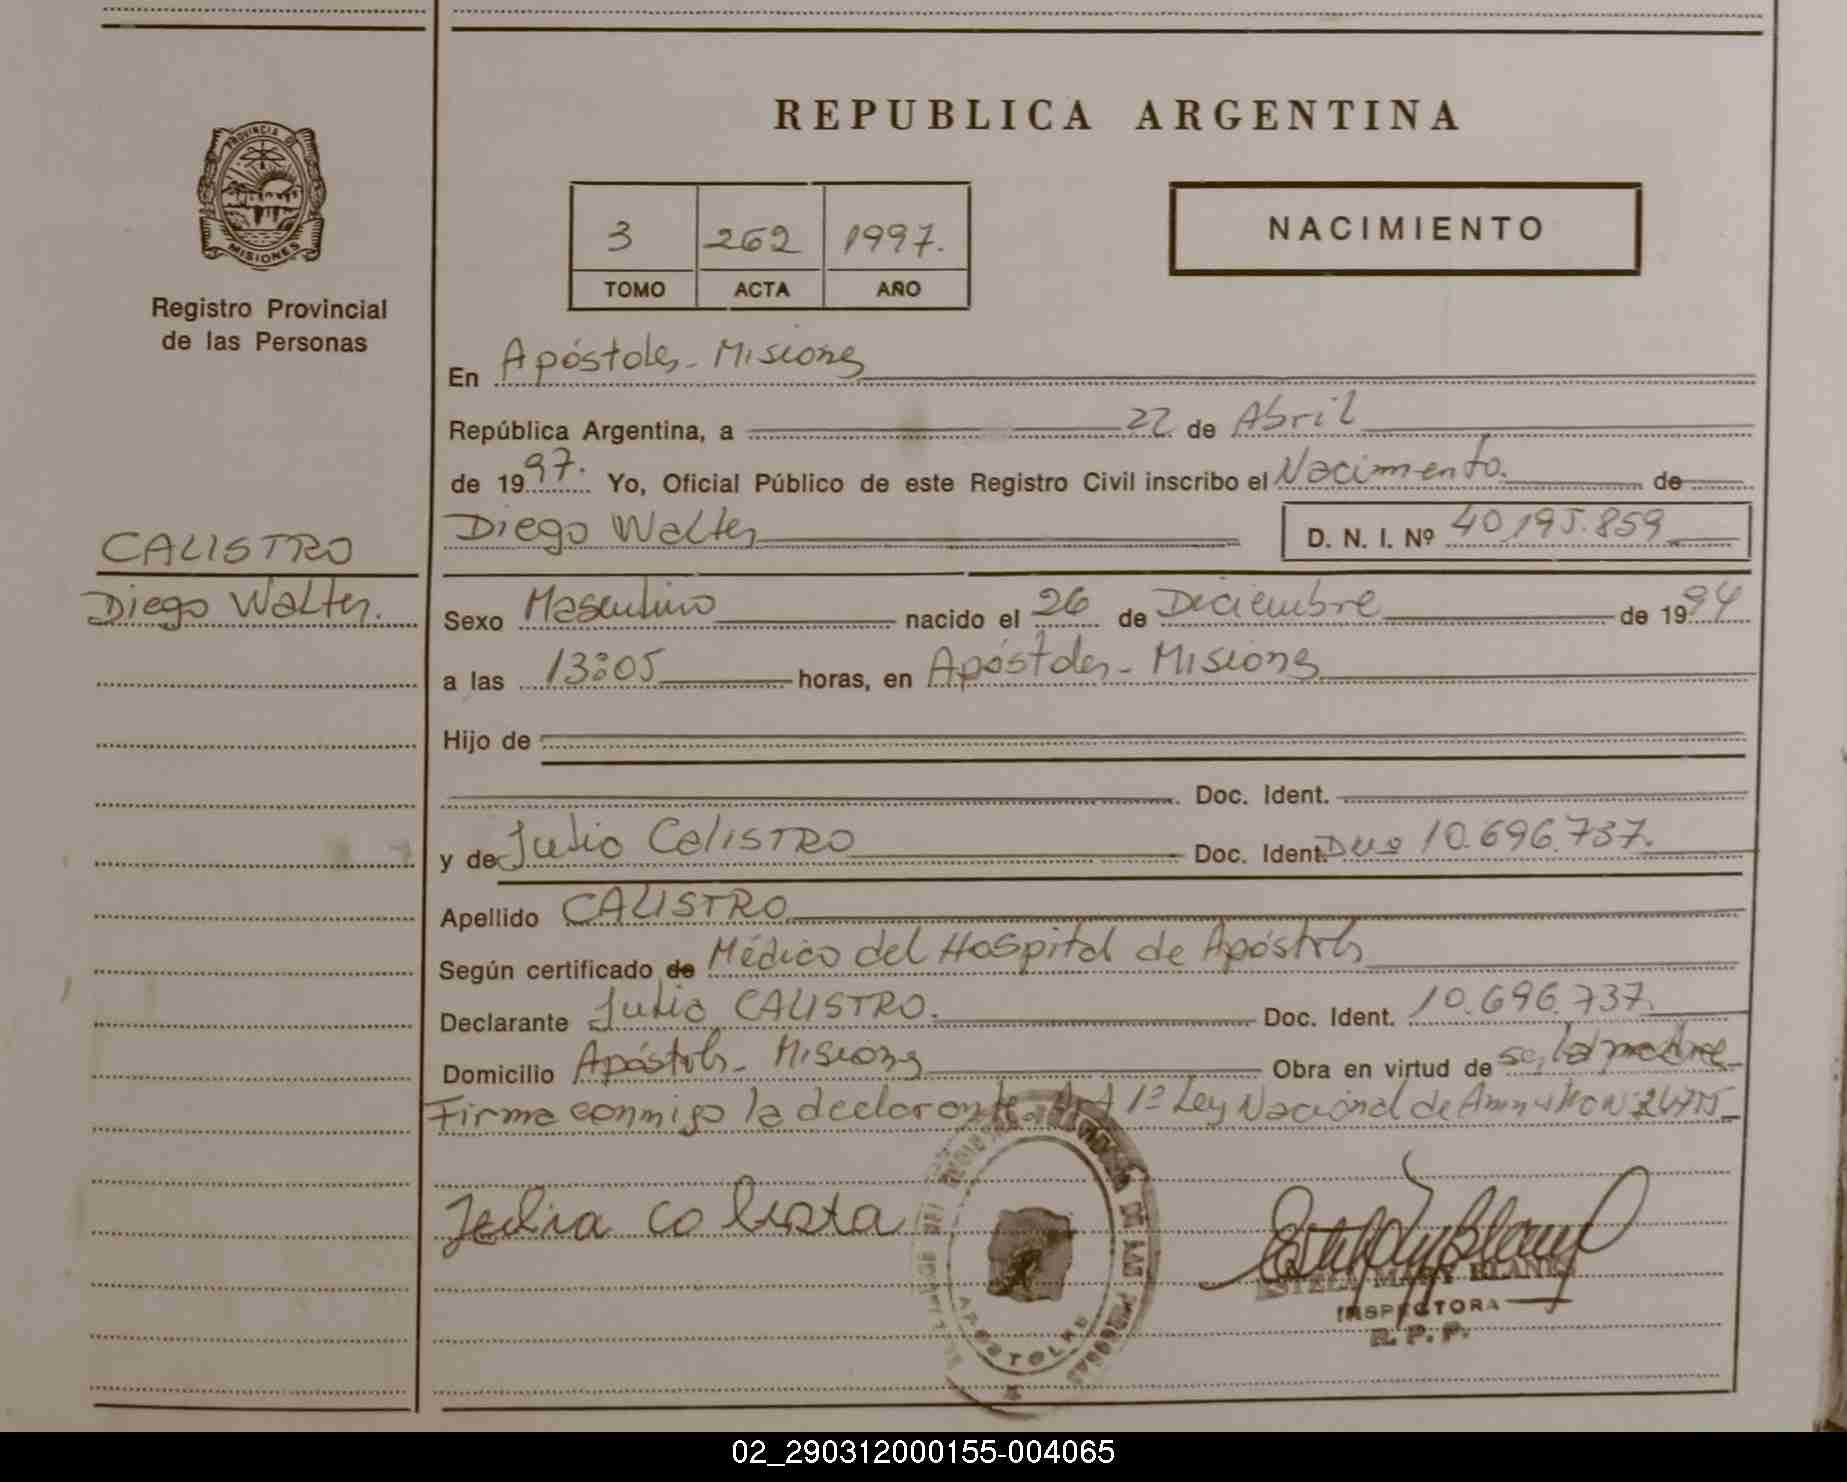 REPUBLICA ARGENTINA
PROVINCIA DE
MISIONES
Registro Provincial
de las Personas
3 262 1997.
TOMO ACTA AÑO
NACIMIENTO
En Apóstoles - Misiones
República Argentina, a 22 de Abril
de 1997. Yo, Oficial Público de este Registro Civil inscribo el Nacimiento. de
CALISTRO
Diego Walter.
Diego Walter D. N. I. Nº 40.195.859
Sexo Masculino nacido el 26 de Diciembre de 1994
a las 13:05 horas, en Apóstoles - Misiones
Hijo de
Doc. Ident.
y de Julia CALISTRO Doc. Ident. DNI 10.696.737.
Apellido CALISTRO
Según certificado de Médico del Hospital de Apóstoles
Declarante Julia CALISTRO. Doc. Ident. 10.696.737.
Domicilio Apóstoles - Misiones Obra en virtud de ser la madre
Firma conmigo la declarante. Art 1º Ley Nacional de
Julia
APOSTOLES
ESTELA MARY BLANK
INSPECTORA
R. P. P.
02_290312000155-004065